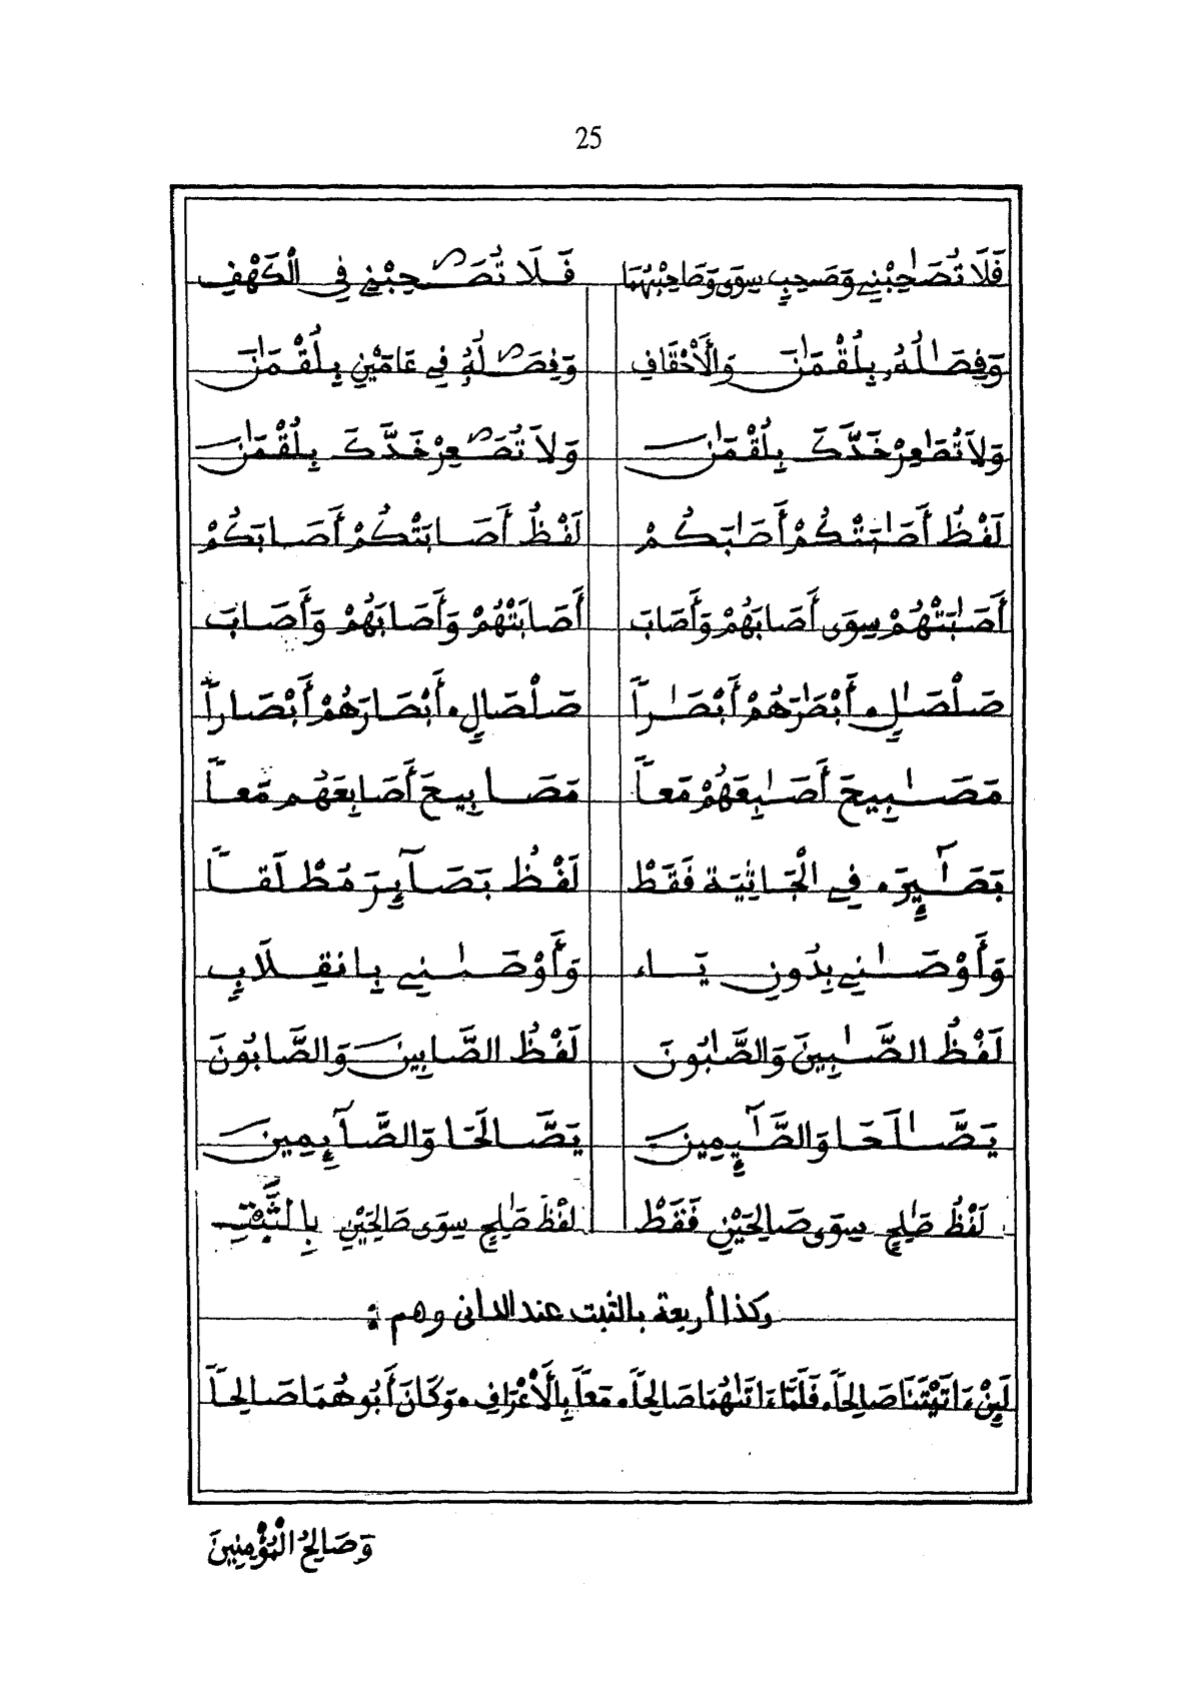 25
فَلَا تُصَٰحِبْنِي وَصَحِبِ سِوَى وَصَاحِبْهُمَا فَلَا تُصَٰحِبْنِي فِي الْكَهْفِ
وَفِصَٰلُهُ بِلُقْمَٰنَ وَالْأَحْقَافِ وَفِصَٰلُهُ فِي عَامَيْنِ بِلُقْمَٰنَ
وَلَا تُصَٰعِرْ خَدَّكَ بِلُقْمَٰنَ وَلَا تُصَٰعِرْ خَدَّكَ بِلُقْمَٰنَ
لَفْظُ أَصَٰبَتْكُمْ أَصَٰبَكُمْ لَفْظُ أَصَابَتْكُمْ أَصَابَكُمْ
أَصَٰبَتْهُمْ سِوَى أَصَابَهُمْ وَأَصَابَ أَصَابَتْهُمْ وَأَصَابَهُمْ وَأَصَابَ
صَلْصَٰلٍ۰ أَبْصَٰرَهُمْ أَبْصَٰراً صَلْصَالٍ۰ أَبْصَارَهُمْ أَبْصَاراً
مَصَٰبِيحَ أَصَٰبِعَهُمْ مَعاً مَصَابِيحَ أَصَابِعَهُمْ مَعاً
بَصَٰٓئِرَ۰ فِي الْجَاثِيَةِ فَقَطْ لَفْظُ بَصَآئِرَ مُطْلَقاً
وَأَوْصَٰنِي بِدُونِ يَاء وَأَوْصَىٰنِي بِانقِلَابِ
لَفْظُ الصَّٰبِينَ وَالصَّٰبُونَ لَفْظُ الصَّابِينَ وَالصَّابُونَ
يَصَّٰلَحَا وَالصَّٰٓئِمِينَ يَصَّالَحَا وَالصَّآئِمِينَ
لَفْظُ صَٰلِحٍ سِوَى صَالِحَيْنِ فَقَطْ لَفْظُ صَٰلِحٍ سِوَى صَالِحَيْنِ بِالثَّبْتِ
وكذا أربعة بالثبت عند الدانى وهم :
لَئِنْ ءَاتَيْتَنَا صَالِحاً۰ فَلَمَّا ءَاتَىٰهُمَا صَالِحاً۰ مَعاً بِالْأَعْرَافِ۰ وَكَانَ أَبُوهُمَا صَالِحاً
وَصَالِحُ الْمُؤْمِنِينَ